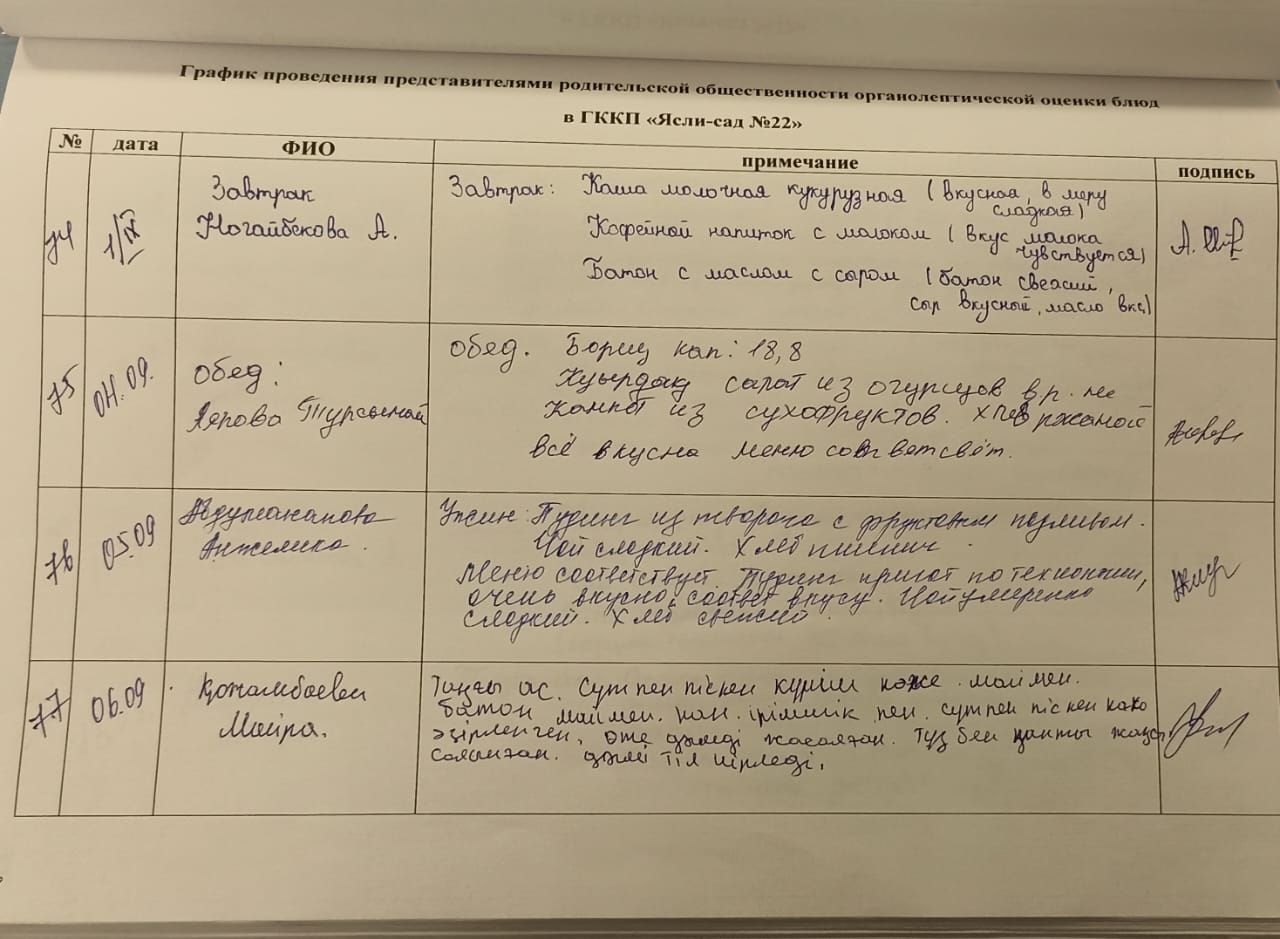 График проведения представителями родительской общественности органолептической оценки блюд
в ГККП «Ясли-сад №22»
№ дата ФИО примечание подпись
74 1/IX Завтрак
Ногайбекова А.
Завтрак: Каша молочная кукурузная (вкусная, в меру
сладкая)
Кофейной напиток с молоком (вкус молока
чувствуется)
Батон с маслом с сыром (батон свежий,
сыр вкусный, масло вкс)
А.
75 04.09. обед:
Аярова Турсынай
обед. Борщ кап: 18,8
Куырдак салат из огурцов в р. ме
Компот из сухофруктов. хлеб ржаной
всё вкусна меню соответсвет.
76 05.09 Абдужанапова
Анжелика.
Ужин: Пудинг из творога с фруктовым подливом.
Чай сладкий. Хлеб пшенич
Меню соответствует. Пудинг пригот по технологии,
очень вкусно, соответ вкусу. Чай умеренно
сладкий. Хлеб свежий.
77 06.09 Қожамбаева
Маира.
Таңғы ас. Сутпен піскен күріш көже маймен.
батон маймен. нан. ірімшік пен. сутпен піскен како
әзірленген, өте дәмді жасалған. Тұз бен қанты жақсы
салынған. дәмі тіл үйіреді.